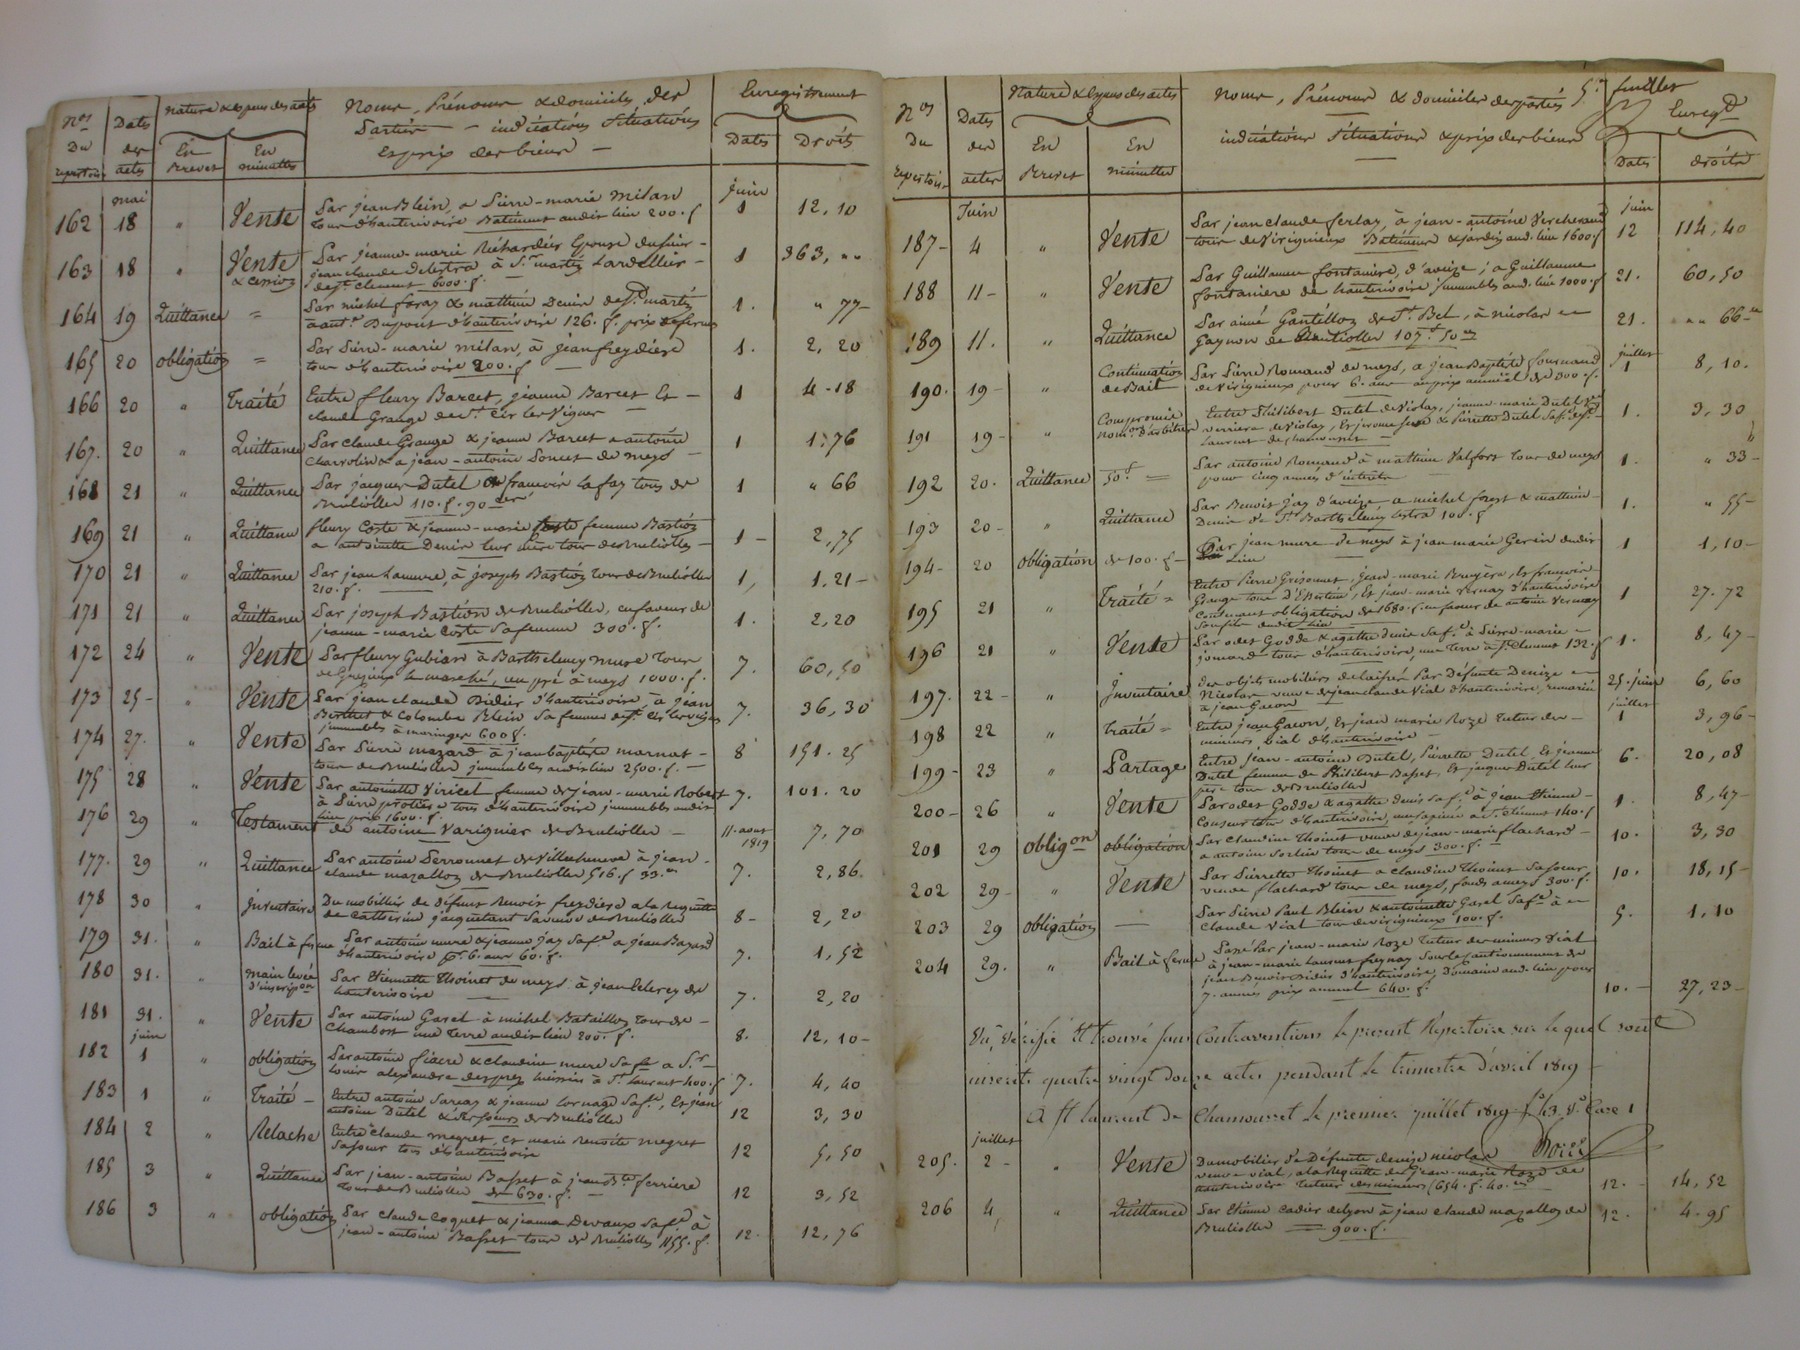 Nos Du repertoire
Dates des actes
Nature & espece des actes
En Brevet
En minuttes
Noms, Prénoms & domiciles des
Parties — indications Situations
Et prix des biens —
Enregistrement
Dates
Droits
mai
juin
162 18 " Vente Par jean Blein, a Pierre-marie Milan
tous d'hauterivoire Batiment audit lieu 200. f 1 12, 10
163 18 " Vente Par jeanne-marie Richardier Epouse du sieur -
& cession jean claude Delestra à Sr. martin Lardellier - 1 363, ""
de St. clement 6000. f.
164 19 Quittance = Par michel foray & mathieu Denis de St. martin
a ant.e Dupont d'hauterivoire 126. f. prix de ferme 1. " 77-
165 20 obligation = Par Pierre-marie milan, à jean freydiere
tous d'hauterivoire 200. f — 1. 2, 20
166 20 " Traité Entre fleury Barcet, jeanne Barcet Et -
claude Grange de St. Cir les Vignes — 1 4-18
167. 20 " Quittance Par Claude Grange & jeanne Barcet a antoine
Charvolin & a jean-antoine Poncet de meys - 1 1. 76
168 21 " Quittance Par jacques Dutel a francois Lafay tous de
Brulioller 110. f. 90 1 " 66
169 21 " Quittance fleury Coste & jeanne-marie Coste femme Bastion
a antoinette Denis leur mère tous de Brulioller - 1 - 2, 75
170 21 " Quittance Par jean Lamure, à joseph Bastion tous de Brulioller
210. f. — 1, 1. 21 -
171 21 " Quittance Par joseph Bastion de Brulioller, en faveur de
jeanne-marie Coste Sa femme 300. f. 1. 2, 20
172 24 " Vente Par fleury Gubian à Barthelemy mure tous
de Grezieux le marché, un pré à meys 1000. f. 7. 60, 50
173 25 - " Vente Par jean claude Didier d'hauterivoire, à jean
Berthet & Colombe Blein Sa femme de St. Cir les vignes 7. 36, 30
immeubles à maringes 600 f.
174 27. " Vente Par Pierre mazard à jean baptiste marnat -
tous de Brulioller immeubles audit lieu 2500. f. — 8 151. 25
175 28 " Vente Par antoinette Viricel femme de jean-marie Robert
à Pierre protiere tous d'hauterivoire immeubles audit 7. 101. 20
lieu prix 1600. f.
176 29 " Testament de antoine Varignier de Brulioller — 11. aout 1819 7, 70
177. 29 " Quittance Par antoine Perronnet de Villechenève à jean -
claude mazallon de Brulioller 516. f 33. 7. 2, 86.
178 30 " Inventaire Du mobilier de défunt Benoit freydiere a la Requette
de Catherine jacquetant Sa veuve de Brulioller 8 - 2, 20
179 31. " Bail à ferme Par antoine mure & jeanne jay Sa f.e a jean Bazard
d'hauterivoire pr. 6. ans 60. f. 7. 1, 52
180 31. " main levée d'inscripon Par Etiennette Thoinet de meys à jean Clerc de
hauterivoire — 7. 2, 20
181 31. " Vente Par antoine Garel à michel Bataillon tous de -
Chambost une Terre audit lieu 200. f. 8. 12, 10 -
juin
182 1 " obligation Par antoine fiacre & claudine mure Sa fe. a Sr.
Louis alexandre desprez huissier à St. Laurent 400. f 7. 4, 40
183 1 " Traité — Entre antoine Sarcay & jeanne Cornage Sa f.e, Et jean
antoine Dutel & Ses Soeurs de Brulioller 12 3, 30
184 2 " Relache Entre claude megret, et marie Benoite megret
Sa Soeur tous d'hauterivoire 12 5, 50
185 3 " Quittance Par jean-antoine Basset à jean B.te ferriere
tous de Brulioller de 630. f. — 12 3, 52
186 3 " obligation Par claude Coquet & jeanne Devaux Sa f.e à
jean-antoine Basset tous de Brulioller 1155. f. 12. 12, 76
5.e feuillet
Nos Du repertoire
Dates des actes
Nature & espece des actes
En Brevet
En minuttes
Noms, Prénoms & domiciles des parties
indications Situations & prix des biens
Enreg.t
Dates
droits
Juin
juin
187 - 4 " Vente Par jean claude ferlay, à jean-antoine Verchesand
tous de Virigneux Batiment & jardin aud. lieu 1600 f 12 114, 40
188 11 - " Vente Par Guillaume fontaniere, d'aveize, a Guillaume
fontaniere de hauterivoire immeubles aud. lieu 1000. f 21. 60, 50
189 11. " Quittance Par aimé Gantillon de St. Bel, à nicolas
Gaynon de Brulioller 107. f 50 21. "" 66
juillet
190. 19 - " Continuation de Bail Par Pierre Romand de meys, a jean Baptiste fournand
de Virigneux pour 6. ans au prix annuel de 300. f. 1 8, 10.
191 19 - " Compromis nomon d'arbitres Entre Philibert Dutel de Violay, jeanne-marie Dutel Ve.
verriere de Violay, Et & Pierrette Dutel Sa f.
Laurent de chamousset — 1. 3, 30
192 20. Quittance 50. f = Par antoine Romand à mathieu Valfort tous de meys
pour cinq années d'interets 1. " 33 -
193 20 - " Quittance Par Benoit jay d'aveize a michel forest & mathieu
Denis de St. Barthelemy Lestra 100. f 1. " 55 -
194 - 20 obligation de 100. f - Par jean mure de meys à jean marie Gerin dudit
Lieu — 1 1, 10 -
195 21 " Traité = Entre Pierre Grizonnet, jean-marie Bruyère, Et francois
Grange tous d'Essertine, Et jean-marie Vernay d'hauterivoire
Contenant obligation de 1680. f. en faveur de antoine Vernay 1 27. 72
Son fils dudit lieu
196 21 " Vente Par odet Godde & agathe denis Sa f.e à Pierre-marie
jomard tous d'hauterivoire, une Terre à St. Clement 132. f 1. 8, 47 -
197. 22 - " Inventaire des objets mobiliers delaissés Par Défunte Denize
Nicolas veuve de jean claude Vial d'hauterivoire, remariée 25. juin 6, 60
à jean Gacon
juillet
198 22 " Traité = Entre jean Gacon, Et jean marie Roze Tuteur des -
mineurs Vial d'hauterivoire — 1 3, 96 -
199 - 23 " Partage Entre jean-antoine Dutel, Pierrette Dutel, Et jeanne
Dutel femme de Philibert Basset, Et jacques Dutel leur 6. 20, 08
pere tous de Brulioller
200 - 26 " Vente Par odet Godde & agathe denis Sa f.e à jean Etienne -
tous d'hauterivoire, à St. clement 140. f 1. 8, 47 -
201 29 obligon obligation Par claudine Thoinet veuve de jean-marie flachard -
a antoine tous de meys 300. f. — 10. 3, 30
202 29 - " Vente Par Pierrette Thoinet a claudine Thoinet Sa Soeur
veuve flachard tous de meys, fonds a meys 300. f. 10. 18, 15 -
203 29 obligation — Par Pierre Paul Blein & antoinette Garel Sa f.e à
Claude Vial tous de virigneux 100. f. 5. 1, 10
204 29. " Bail à ferme Passé Par jean-marie Roze Tuteur des mineurs Vial
à jean-marie Laurent freynay Sous le cautionnement de
jean Benoit Didier d'hauterivoire, Domaine aud. lieu pour
7. années prix annuel 640. f. 10. - 27, 23 -
Vû, vérifié Et trouvé sans Contraventions le present Répertoire sur le quel sont
inscrits quatre vingt douze actes pendant le trimestre d'avril 1819 -
A St laurent de Chamousset le premier juillet 1819 f.o 43 V.o Case 1
juillet
205. 2 - " Vente Du mobilier de Défunte denize nicolas
veuve vial, a la Requette de jean-marie Roze de
hauterivoire Tuteur des mineurs (654. f. 40. 12. - 14, 52
206 4, " Quittance Par Etienne Cadier de Lyon à jean claude mazallon de
Brulioller = 900. f. 12. 4. 95